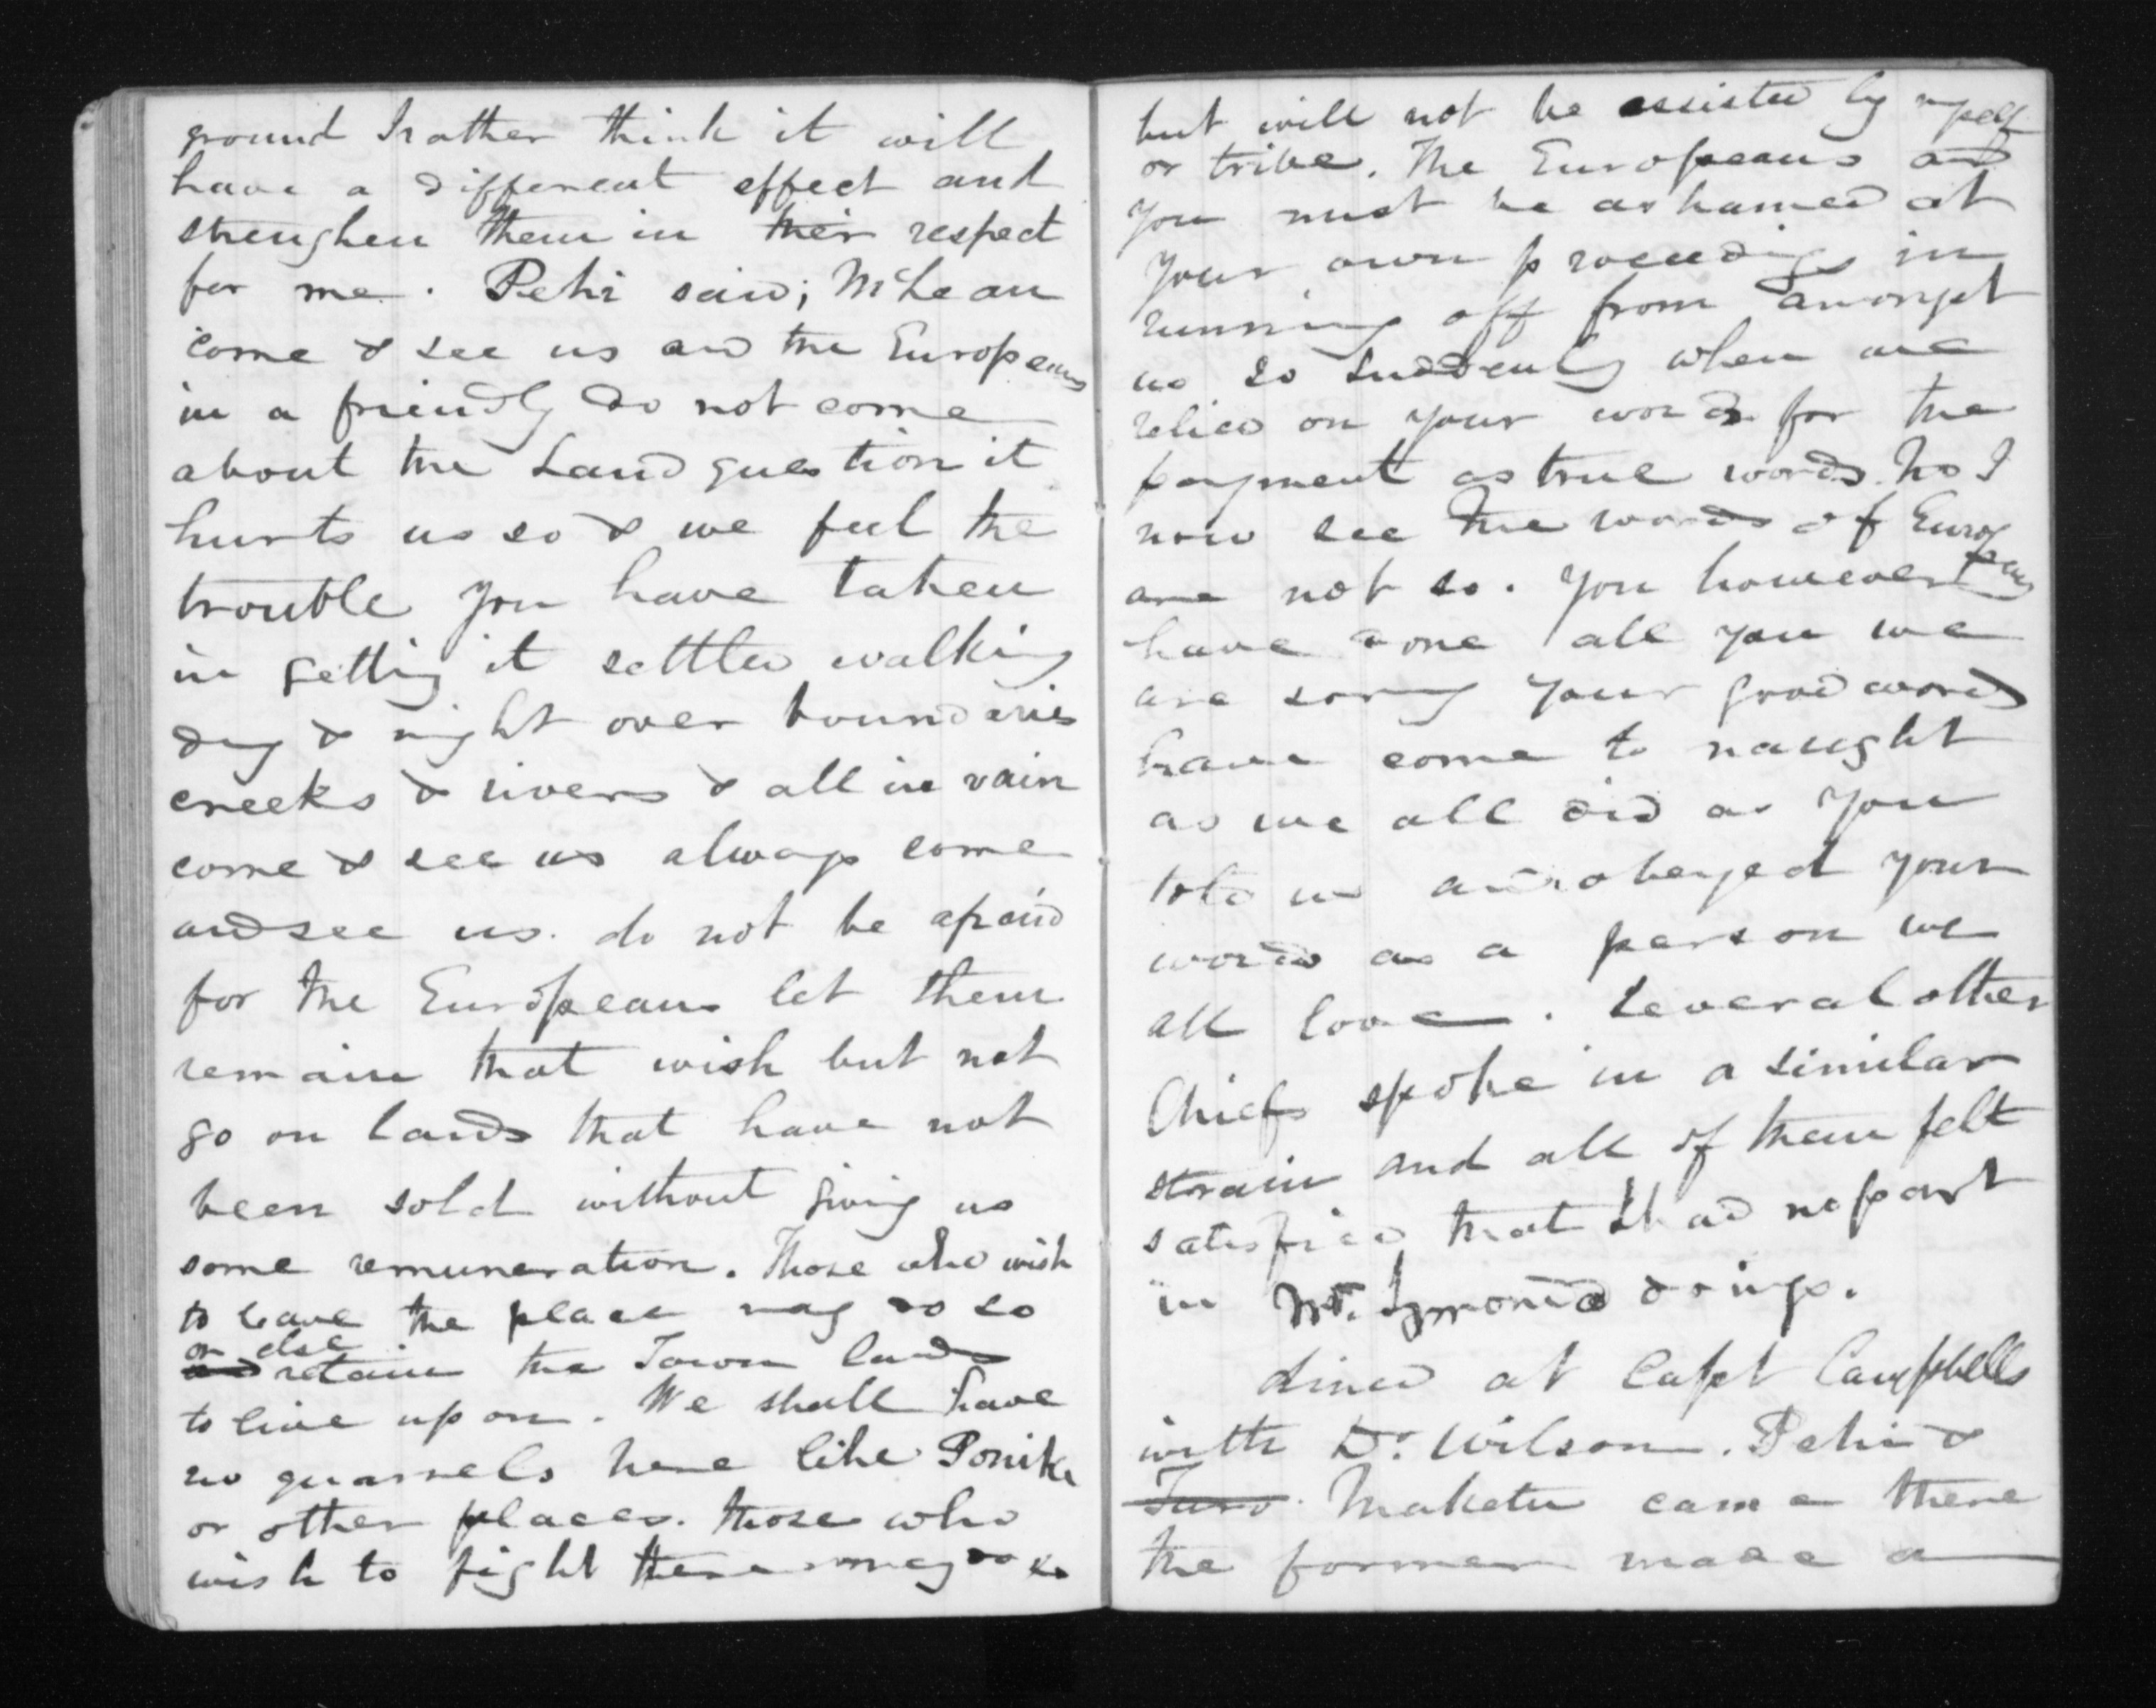 ground I rather think it will
have a different effect and
strenghen them in their respect
for me. Pehi said; McLean
come & see us and the Europeans
in a friendly do not come
about the Land question it
hurts us so & we feel the
trouble you have taken
in getting it settled walking
day & night over boundaries
creeks & rivers & all in vain
come & see us always come
and see us. do not be afraid
for the Europeans let them
remain that wish but not
go on lands that have not
been sold without giving us
some remuneration. Those who wish
to leave the place may do so
or else
and retain the Town lands
to live upon. We shall have
no quarrels here like Ponike
or other places. those who
wish to fight there may do so
but will not be assisted by myself
or tribe. The Europeans and
you must be ashamed at
your own proceedings in
running off from amongst
us so suddenly when we
relied on your words for the
payment as true words. No I
now see the words of Europeans
are not so. You however
have done all you we
are sorry your good words
have come to naught
as we all did as you
told us and obeyed your
words as a person we
all love. Several other
Chiefs spoke in a similar
strain and all of them felt
satisfied that I had no part
in Mr. Symonds doings.
dined at Capt Campbells
with Dr. Wilson. Pehi &
Turo. Maketu came there
the former made a